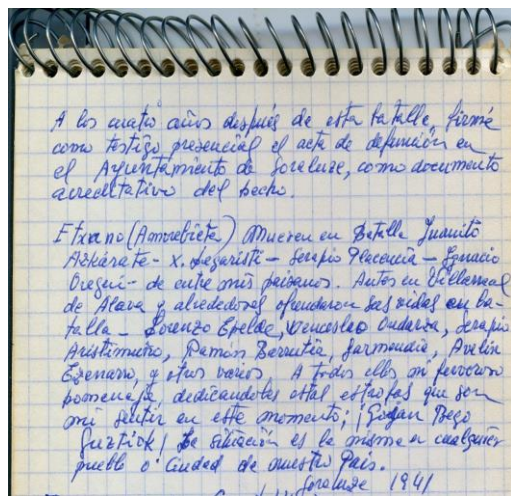 A los cuatro años después de esta batalla, firmé
como testigo presencial el acta de defunción en
el Ayuntamiento de Soraluze, como documento
acreditativo del hecho.
Etxano (Amorebieta) Mueren en Batalla Juanito
Azkárate - X. Legaristi - Serapio Placencia - Ignacio
Oregui - de entre mis paisanos. Antes en Villarreal
de Alava y alrededores ofrendaron sus vidas en ba-
talla - Lorenzo Epelde, Wenceslao Ondarza, Serapio
Aristimuño, Ramón Barrutia, Garmendia, Avelin
y otros varios A todos ellos mi fervoroso
homenaje, dedicandoles estas estrofas que son
mi sentir en este momento; ¡Goyan Bego
La situación es la misma en cualquier
pueblo o Ciudad de nuestro País.
Soraluze 1941